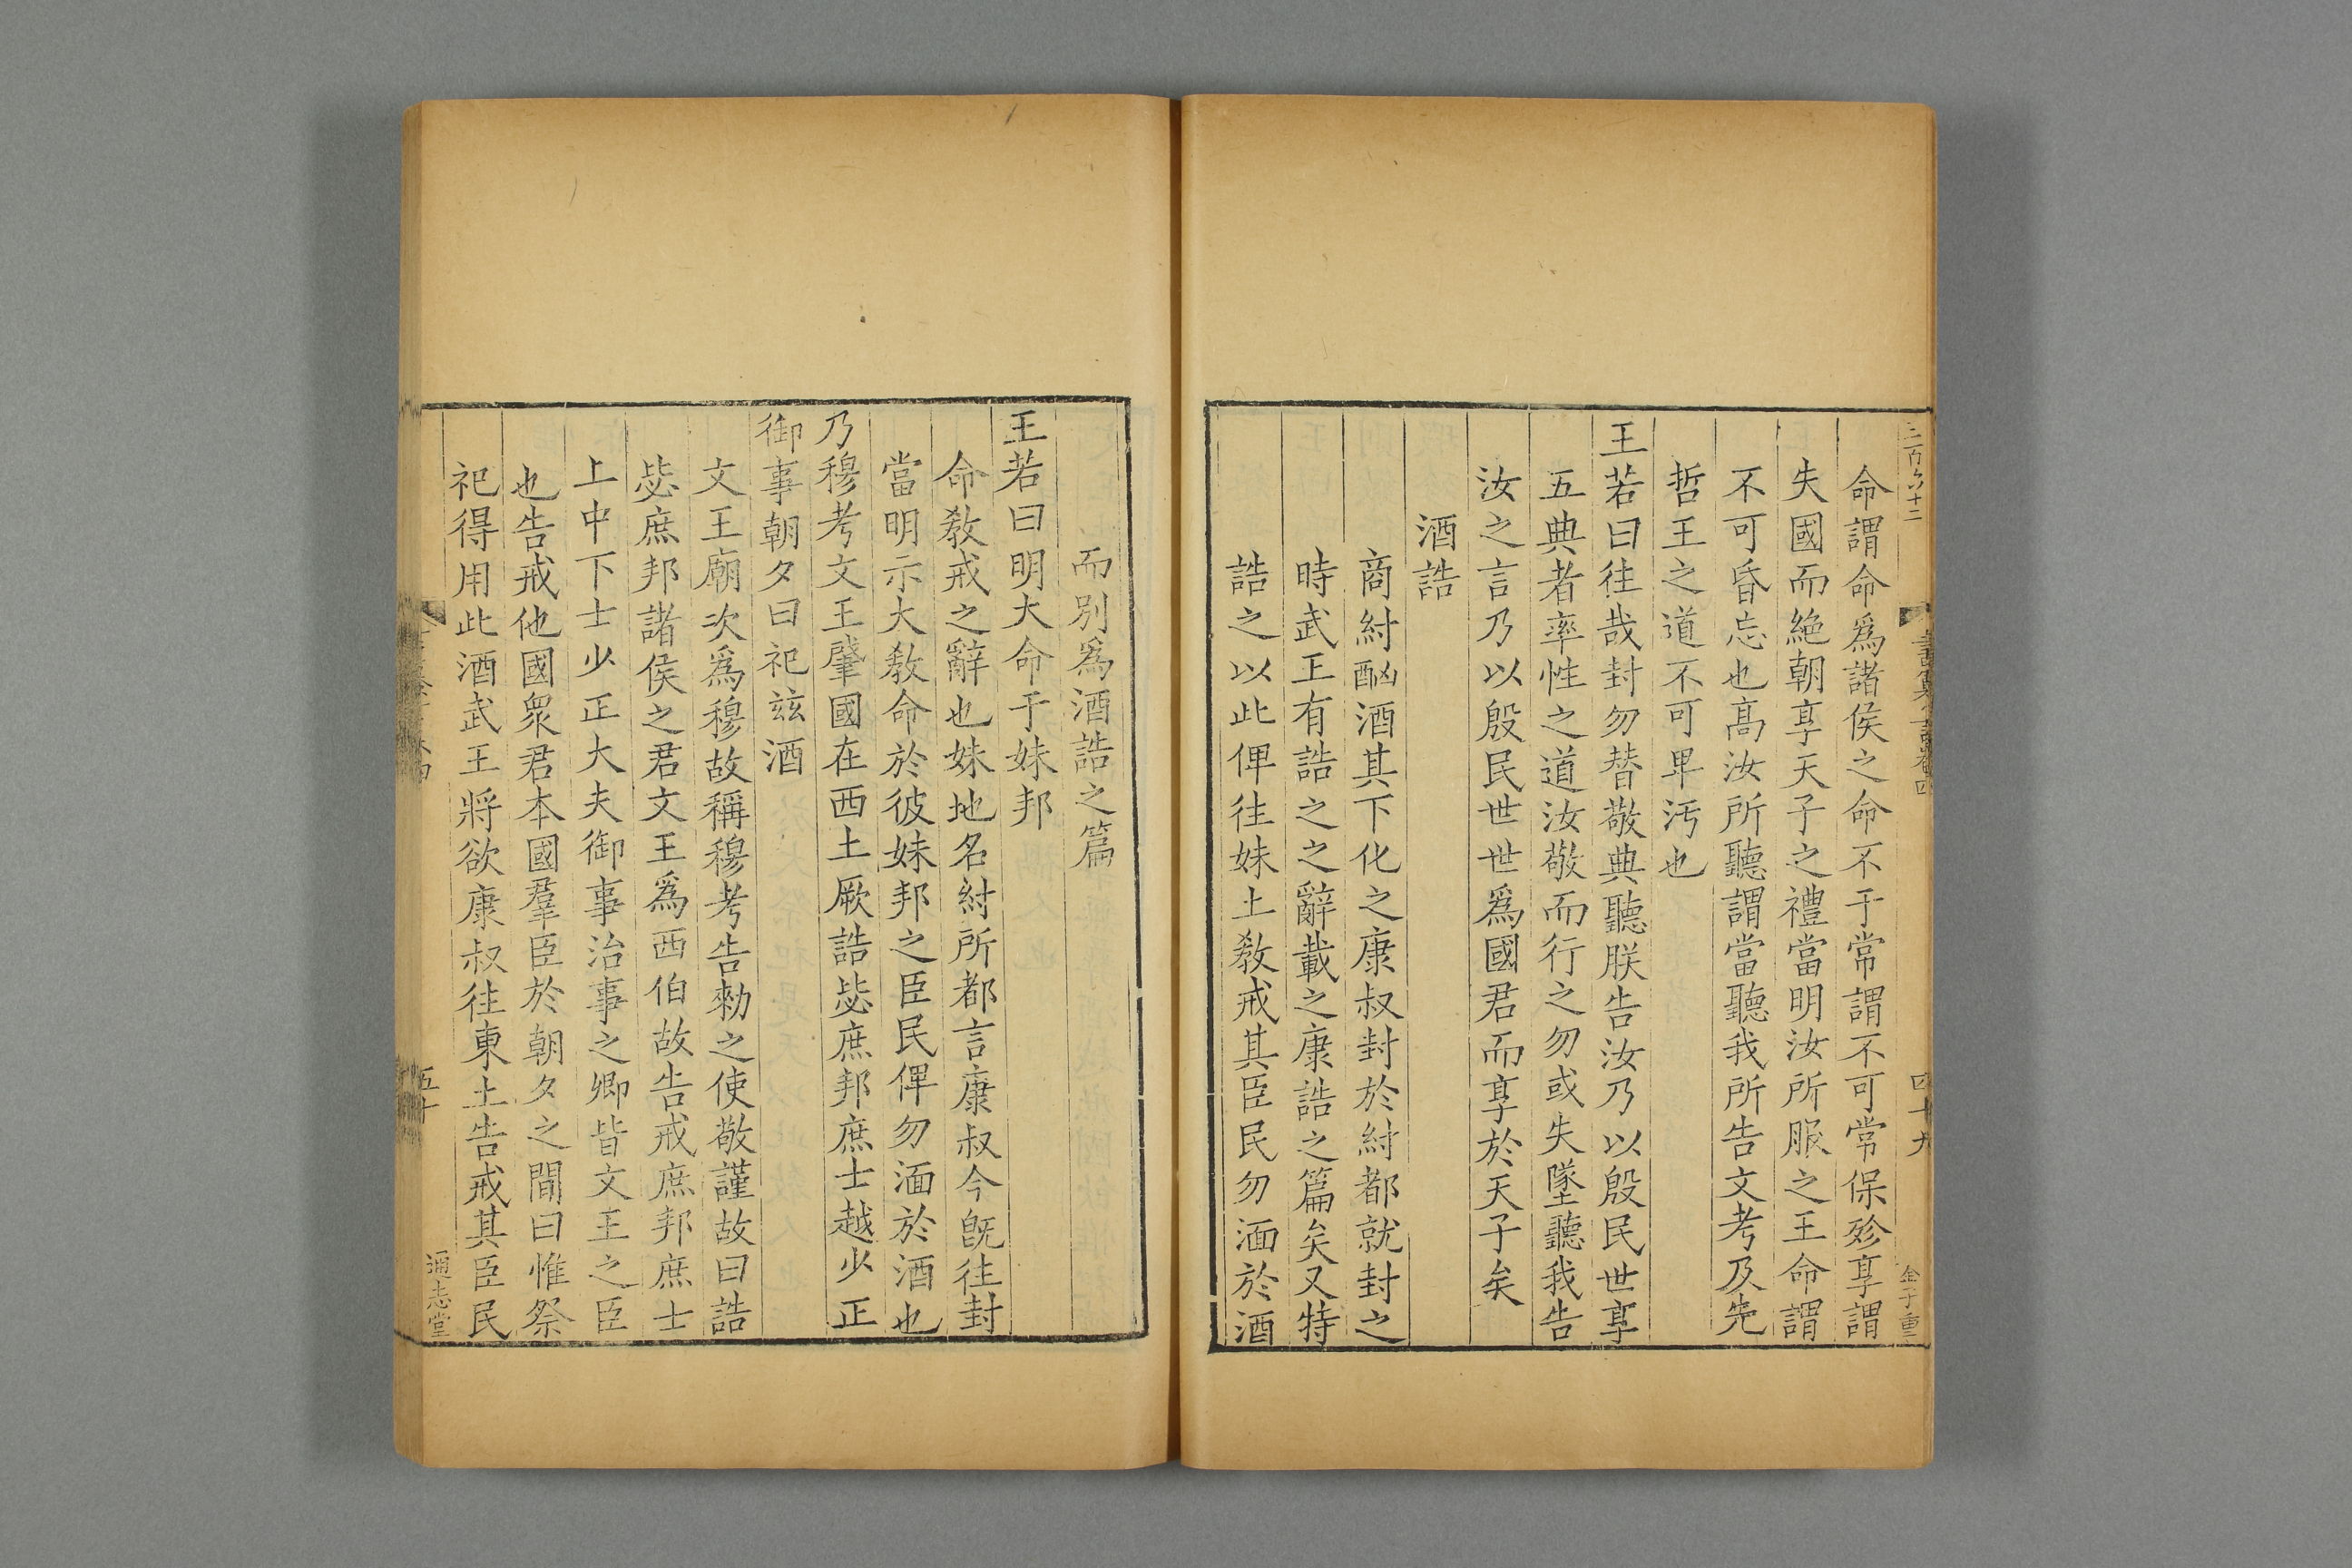 命謂命爲諸侯之命不于常謂不可常保殄享謂
失國而絶朝享天子之禮當明汝所服之王命謂
不可昏忘也髙汝所聽謂當聽我所告文考及先
哲王之道不可卑汚也
王若曰往哉封勿替敬典聽朕告汝乃以殷民世享
五典者率性之道汝敬而行之勿或失墜聽我告
汝之言乃以殷民世世爲國君而享於天子矣
酒誥
商紂酗酒其下化之康叔封於紂都就封之
時武王有誥之之辭載之康誥之篇矣又特
誥之以此俾往妹土敎戒其臣民勿湎於酒
四十九
金子重
而别爲酒誥之篇
王若曰明大命于妹邦
命敎戒之辭也妹地名紂所都言康叔今旣往封
當明示大敎命於彼妹邦之臣民俾勿湎於酒也
乃穆考文王肇國在西土厥誥毖庶邦庶士越少正
御事朝夕曰祀兹酒
文王廟次爲穆故稱穆考告勑之使敬謹故曰誥
毖庶邦諸侯之君文王爲西伯故告戒庶邦庶士
上中下士少正大夫御事治事之卿皆文王之臣
也告戒他國衆君本國羣臣於朝夕之間曰惟祭
祀得用此酒武王將欲康叔往東土告戒其臣民
五十
通志堂